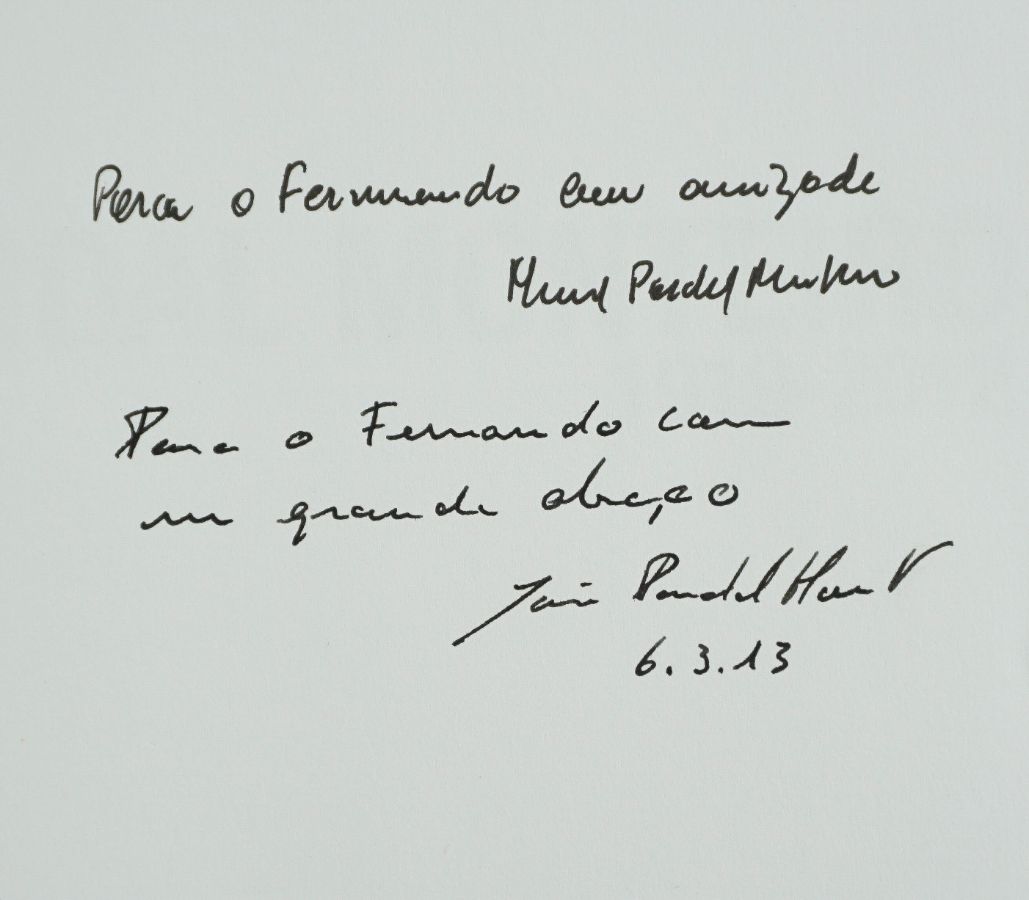 Para o Fernando com amizade
Manuel Pardal Monteiro
Para o Fernando com
um grande abraço
Pardal Mont
6.3.13